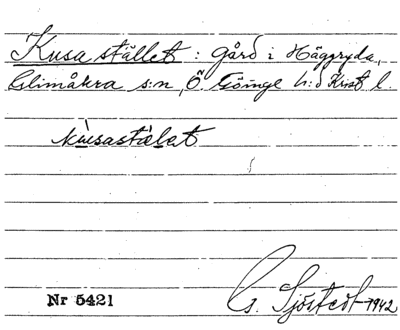 Kusa stället : gård i Häggryda,
Glimåkra s:n, Ö. Göinge h:d Krist l.
kùsastä̀let
Nr 5421
G. Sjöstedt 1942